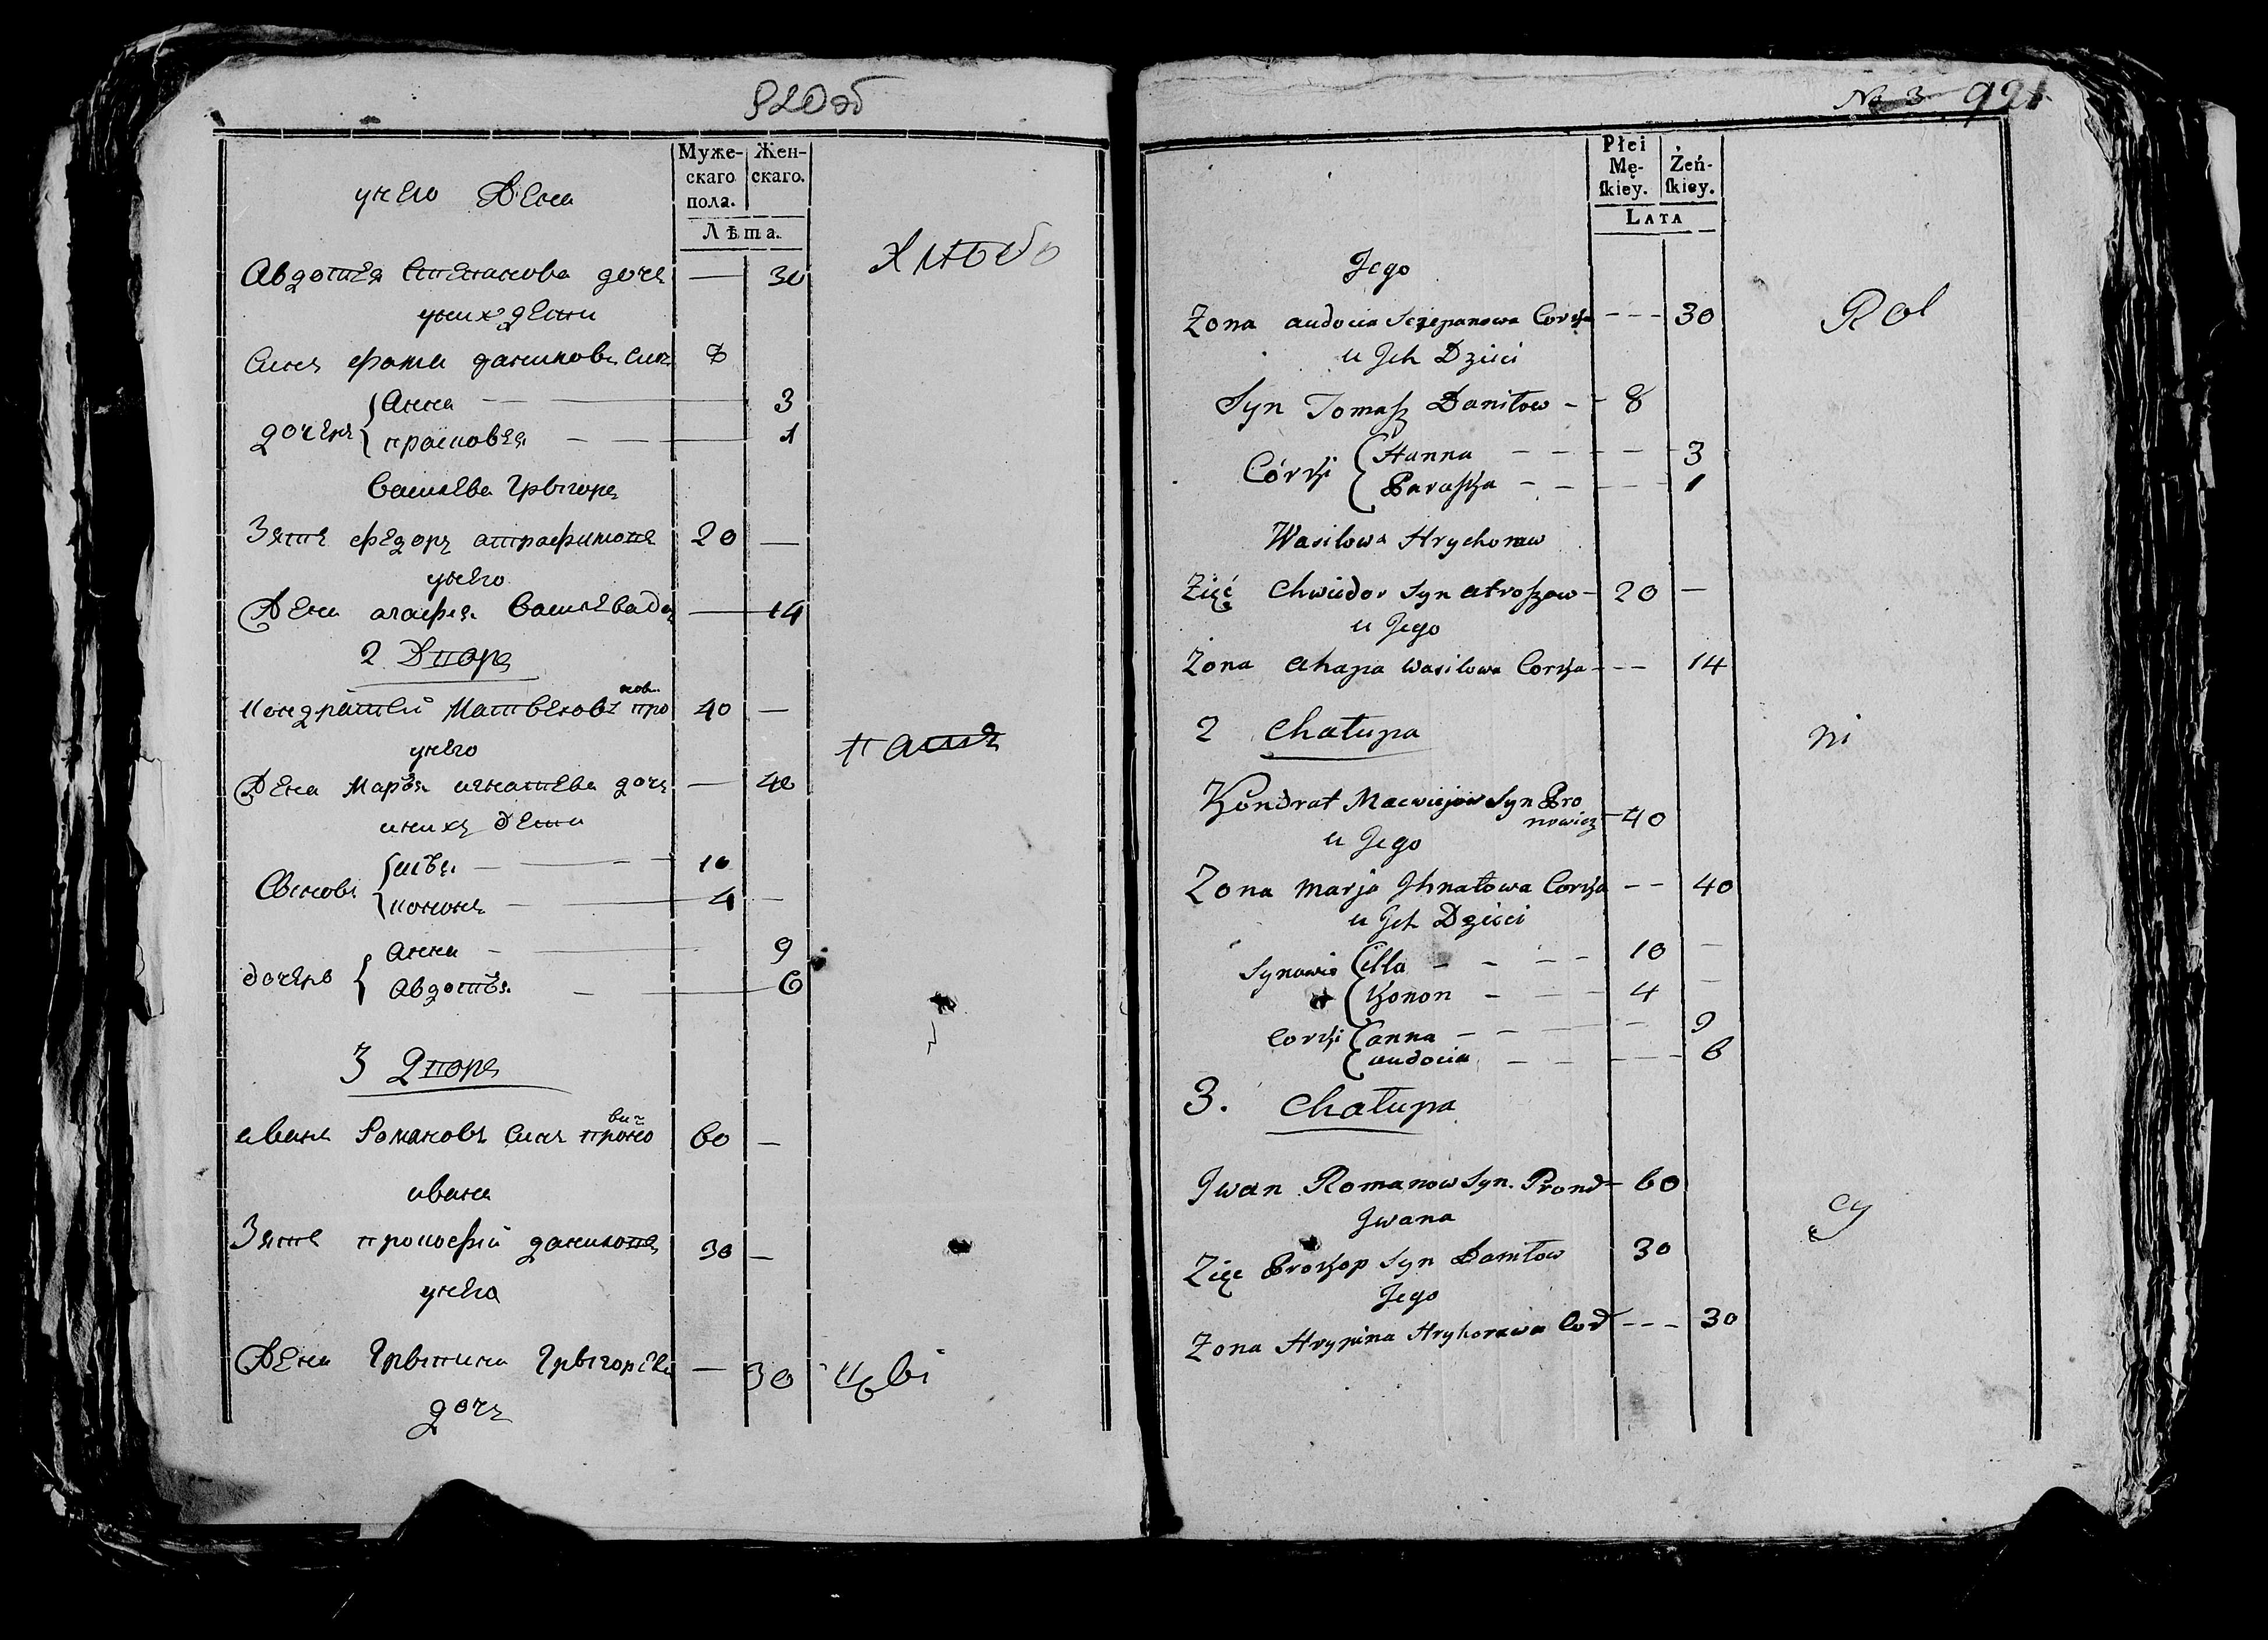 820об
у нево Жена
Муже- скаго пола.
Жен- скаго.
Лѣта.
Авдотея Степанова дочь — 30
у них дети
Синъ фома даниловъ Синъ 8
дочеръ Анна — 3
прасковея — 1
Василева Грыгоръ
Зять федоръ атрафимовъ 20 —
у нево
Жена агафея Василева до — 14
2 Дворъ
Кондратей Матвеювъ про нов. 40 —
у нево
Жена Марья игнатева дочъ — 40
у них дети
Свиновъ илья — 10
кононъ — 4 —
дочерь Анна — 9
Авдотья — 6
3 Дворъ
иванъ Романовъ Синъ проно вич 60 —
ивана
Зять прокофий даниловъ 30 —
у нево
Жена Грыпина Грыгорева — 30
дочъ
Хлѣбо
паш
цы
No 3 991
Płci Mę- ſkiey.
Żeń- ſkiey.
LATA
Jego
Zona audocia Sczepanowa Corka - - - 30
u Jch Dzieci
Syn Tomaſz Daniłow - - 8
Córki Hanna - - - - 3
Paraſka - - - - 1
Wasilowa Hryhoraw
Zięć Chwiedor Syn atroſzow - 20 —
u Jego
Zona ahapa Wasilowa Corka - - - 14
2 Chałupa
Kondrat Maciejow Syn Pro
nowicz - 40
u Jego
Zona Marja Jhnatowa Corka - - 40
u Jch Dzieci
Synowie illa - - - - 10 —
Konon - - - 4 —
Corki anna - - - - 9
audocia - - - - 6
3. Chałupa
Jwan Romanow Syn. Prono - 60
Jwana
Zięc Prokop Syn Daniłow 30
Jego
Zona Hrypina Hryhorawa Cor - - - 30
Rol
ni
cy